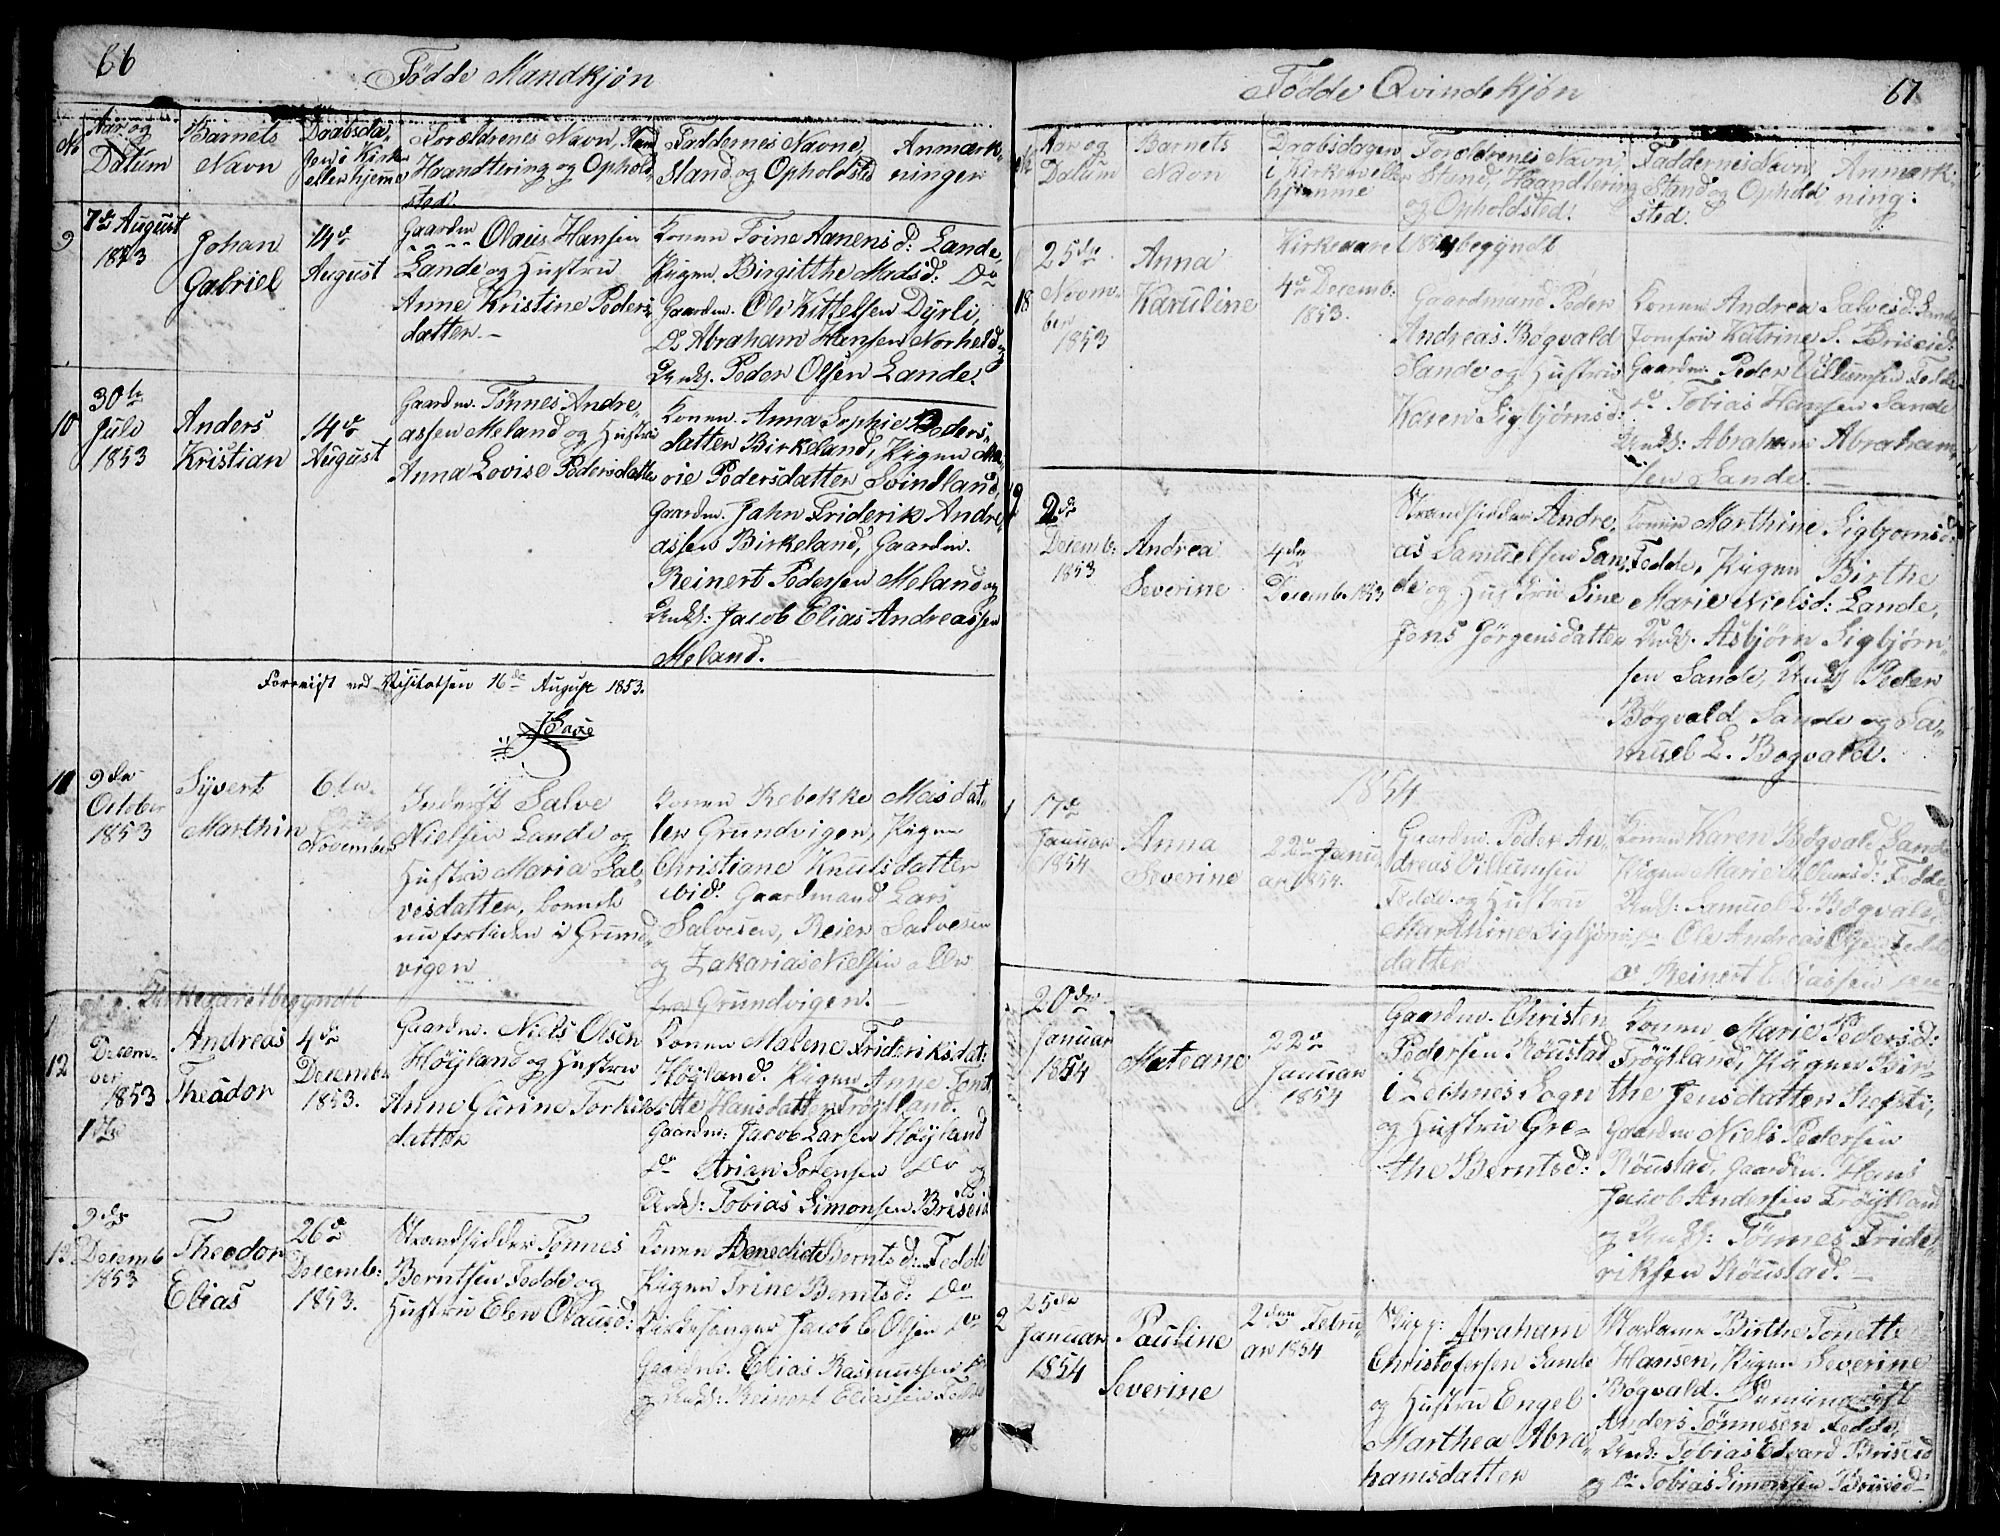 66
Fødde Mandkjøn
Aar og Datum
Barnets Navn
Daabsda-
gen i Kirke
eller hjemme
Forældrenes Navn,
Haandtering og Ophold-
sted.
Faddernes Navne,
Stand og Opholdsted
Anmærk-
ninger
9
7de August
1853
Johan
Gabriel
14de
August
Gaardm. Olaus Hansen
Lande og Hustru
Anne Kristine Peders-
datter.
Konen Trine Aanensd: Lande,
Pigen Birgitthe Madsd: Do
Gaardm. Ole Kittelsen Dyrli,
Do Abraham Hansen Norheld
Unks. Peder Olsen Lande.
10
30te
Juli
1853
Anders
Kristian
14de
August
Gaardm. Tønnes Andre-
assen Meland og Hustru
Anna Lovise Pedersdatter
Konen Anna Sophie Peders-
datter Birkeland, Pigen Ma-
rie Pedersdatter Svindland
Gaardm. Jahn Friderik Andre-
assen Birkeland, Gaardm.
Reinert Pedersen Meland og
Unks: Jacob Elias Andreassen
Meland.
Foreviist ved Visitatsen 16de August 1853.
11
9de
October
1853
Syvert
Marthin
6te
November
Inderst Salve
Nielsen Lande og
Hustru Maria Sal-
vesdatter,
nu fortiden i Grund-
vigen
Konen Rebekke Masdat-
ter Grundvigen, Pigen
Christiane Knutsdatter
ibid. Gaardmand Lars
Salvesen, Reier Salvesen
og Zakarias Nielsen alle
fra Grundvigen.
Kirkegaret begyndt
12
1ste
Decem-
ber
1853
Andreas
Theador
4de
Decemb:
1853.
Gaardm. Niels Olsen
Høyland og Hustru
Anne Gurine Torkils-
datter
Konen Malene Frideriksdat:
Høyland. Pigen Anne Tomi-
ette Hansdatter Frøytland.
Gaardm: Jacob Larsen Høyland
Do Arian Sørensen Do og
Unks: Tobias Simonsen Briseid
9de
Decemb
1853
Theodor
Elias
26de
Decemb:
1853.
Strandsidder Tønnes
Berntsen Fedde og
Hustru Elen Olausd:
Konen Benedicte Berntsd: Fedde
Pigen Trine Berntsd: Do
Kirkesanger Jacob C. Olsen Do
Gaardm. Elias Rasmussen Do
og Unks: Reinert Eliassen Fedde
67
Fødde Qvindekjøn
Aar og
Datum
Barnets
Navn
Daabsdagen
i Kirken eller
hjemme
Forældrenes Navn,
Stand, Haandtering
og Opholdsted.
Faddernes Navn,
Stand og Ophold
sted.
Anmærk-
ning:
Kirkeaaret 1854 begyndt
18
25de
Novem-
ber
1853
Anna
Karuline
4de Decemb:
1853.
Gaardmand Peder
Andreas Bøgvald
Sande og Hustru
Karen Sigbjørnsd:
Konen Andrea Salvesd: Sande
Jomfru Katrine S. Briseid.
Gaardm. Peder Villumsen Fedde
Do Tobias Hansen Sande
Unks: Abraham Abraham-
sen Sande.
2de
Decemb:
1853
Andrea
Severine
4de
Decemb. 1853
Strandsidder Andre-
as Samuelsen San-
de og Hustru Sine
Jens Jørgensdatter
Konen Marthine Sigbjørnsd:
Fedde, Pigen Birthe
Marie Nielsd: Lande,
Unks. Asbjørn Sigbjørn-
sen Sande, Unks Peder
Bøgvald Sande og Sa-
muel L. Bøgvald.
1854
17de
Januar
1854
Anna
Severine
22de Janu-
ar 1854.
Gaardm. Peder An-
dreas Villumsen
Fedde og Hustru
Marthine Sigbjørns-
datter
Konen Karen Bøgvald Sande
Pigen Marie Villumsd: Fedde
Unks: Samuel L. Bøgvald,
Do Ole Andreas Olsen Fedde
Reinert Eliassen
20de
Januar
1854
Mateane
22de
Januar
1854
Gaardm. Christen
Pedersen Røustad
i Lechnes Sogn
og Hustru Gre-
the Berntsd:
Konen Marie Pedersd:
Frøytland, Pigen Bir-
the Jensdatter Refsti,
Gaardm Niels Pedersen
Røustad, Gaardm. Hans
Jacob Andersen Frøytland
og Unks: Tønnes Fride-
riksen Røustad.
2
25de
Januar
1854
Pauline
Severine
2den Febru-
ar 1854
Skipp: Abraham
Christofersen Sande
og Hustru Engel
Marthea Abra-
hamsdatter
Madame Birthe Tonette
Hansen, Pigen Severine
Bøgvald.
Anders Tønnesen Fedde,
Unks: Tobias Edvard Briseid
og Do Tobias Simonsen Briseid